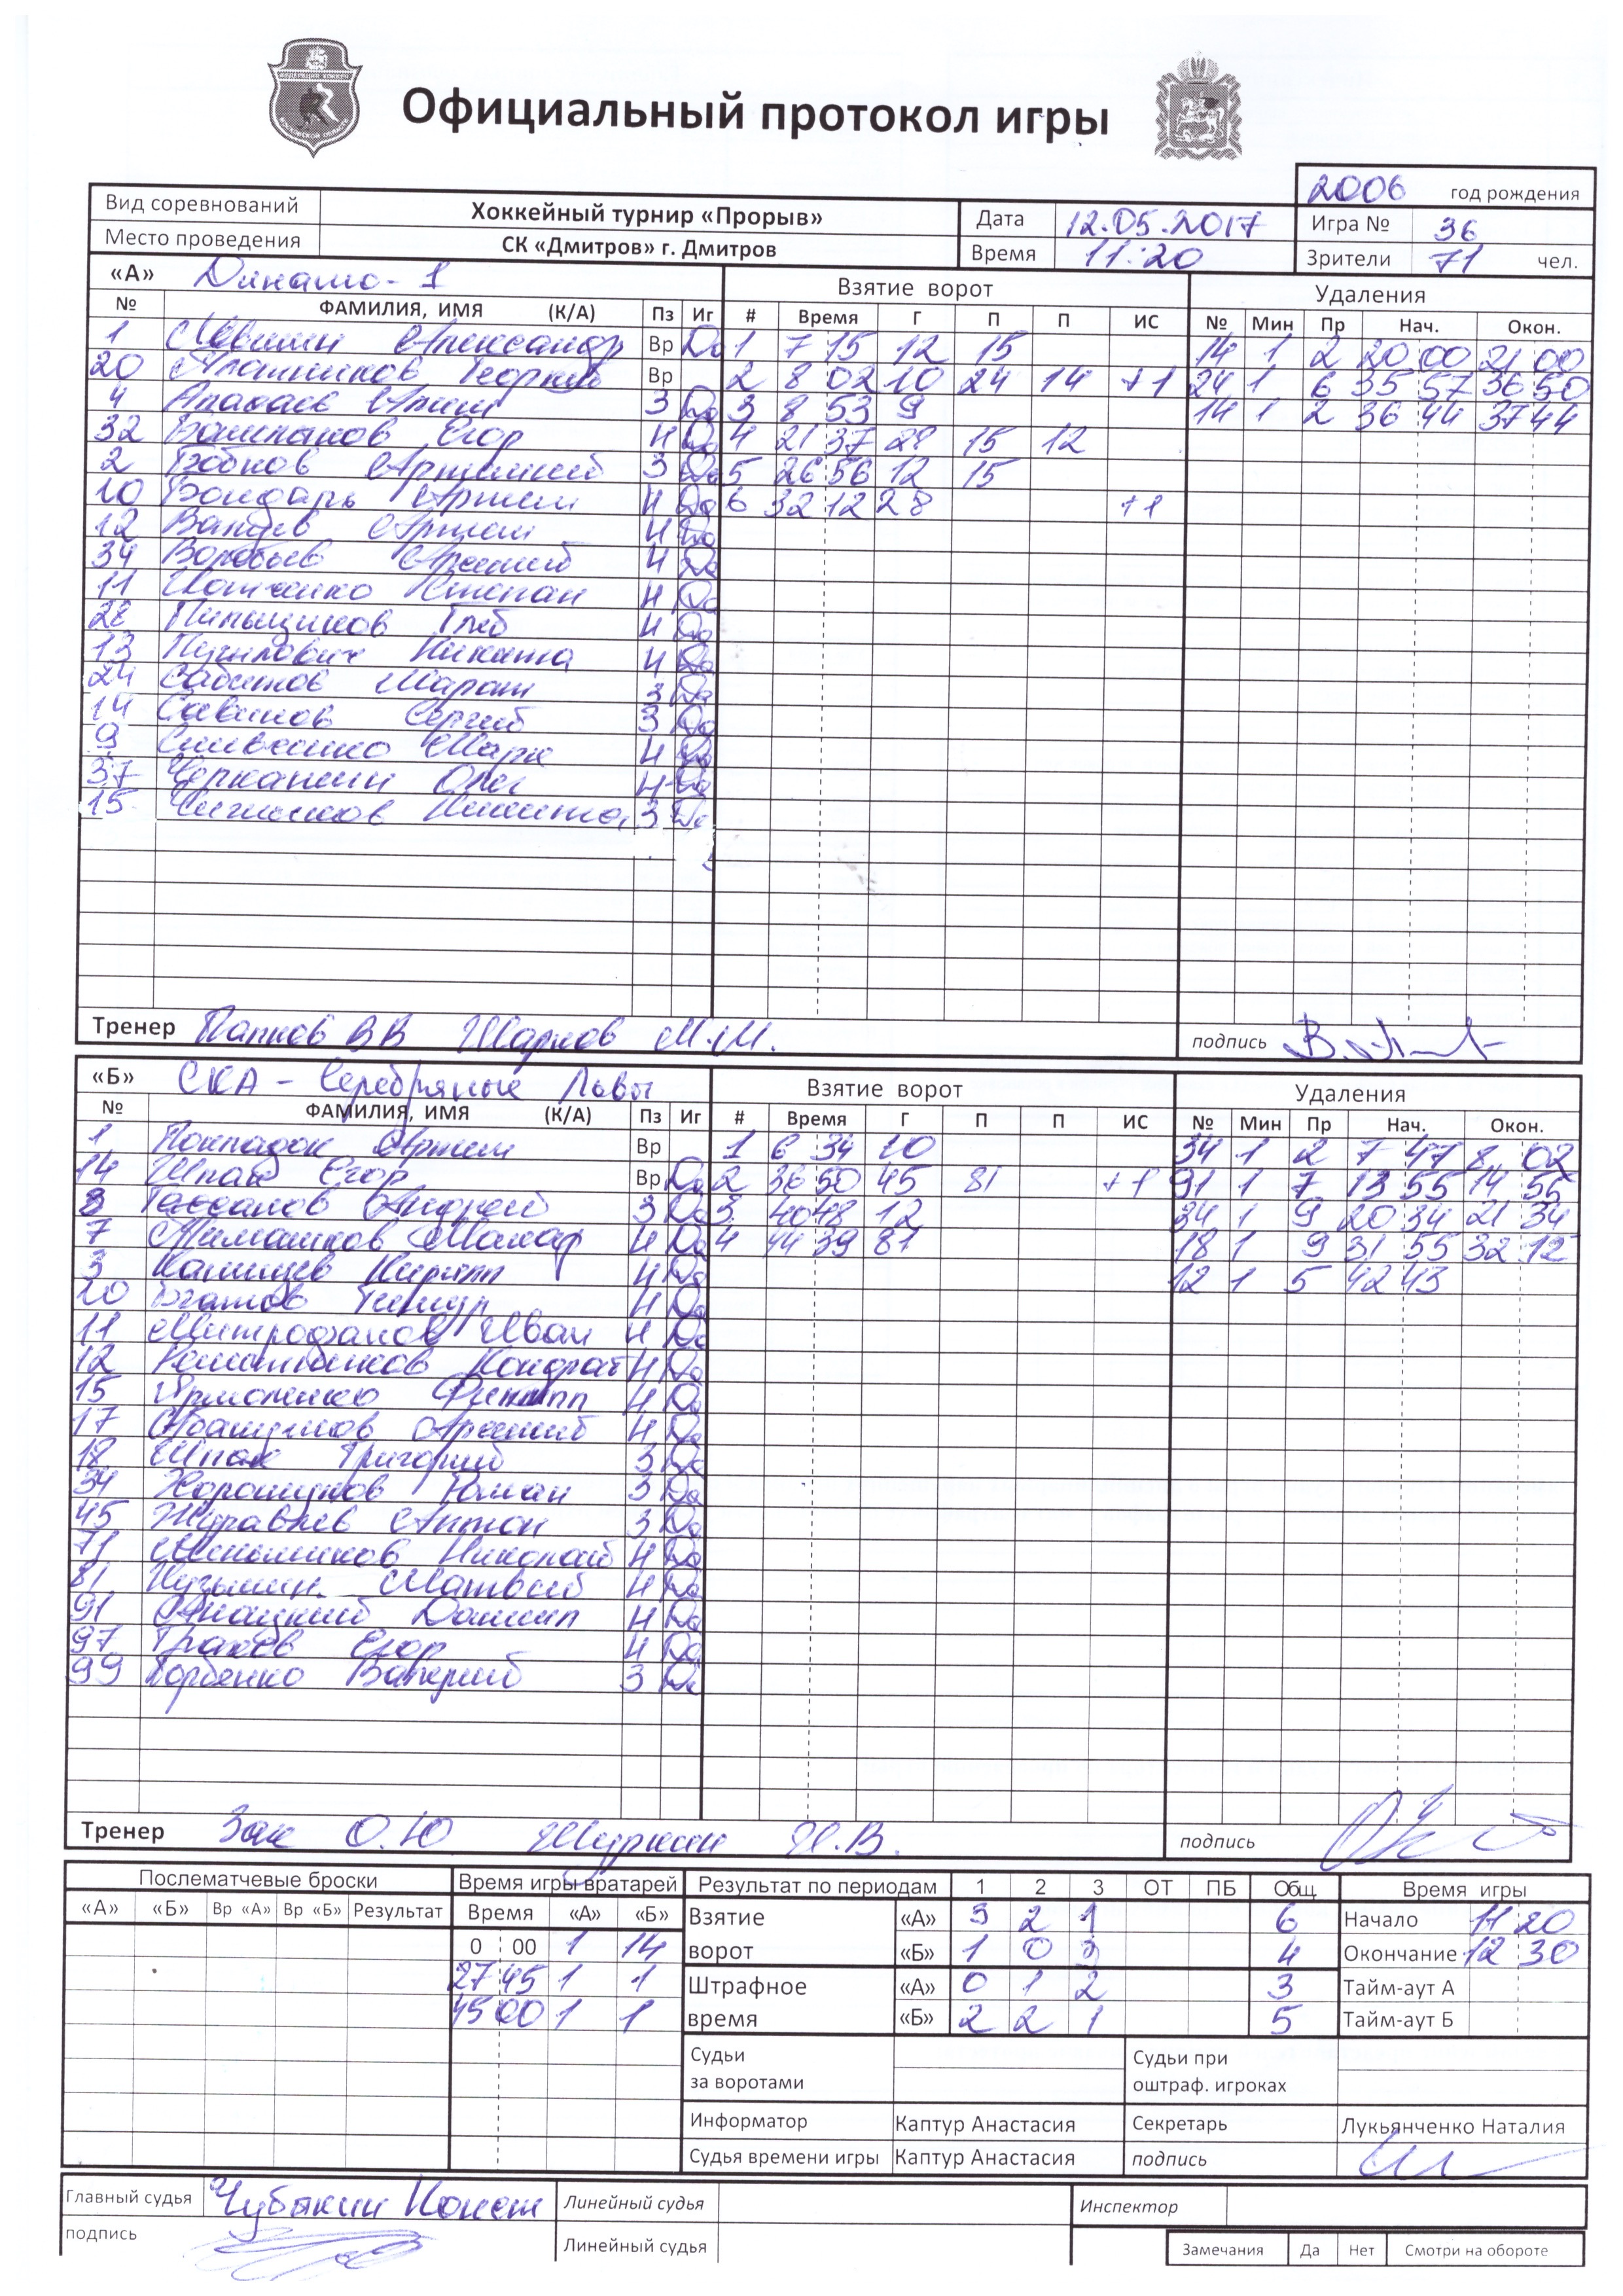 ФЕДЕРАЦИЯ ХОККЕЯ
МОСКОВСКОЙ ОБЛАСТИ
Официальный протокол игры
2006 год рождения
Вид соревнований Хоккейный турнир «Прорыв» Дата 12.05.2017 Игра № 36
Место проведения СК «Дмитров» г. Дмитров Время 11:20 Зрители 71 чел.
«А» Динамо-1 Взятие ворот Удаления
№ ФАМИЛИЯ, ИМЯ (К/А) Пз Иг # Время Г П П ИС № Мин Пр Нач. Окон.
1 Александр Вр Да 1 7 15 12 15 14 1 2 20 00 21 00
20 Георгий Вр 2 8 02 10 24 14 +1 24 1 6 35 57 36 50
4 З Да 3 8 53 9 14 1 2 36 44 37 44
32 Егор Н Да 4 21 37 28 15 12
2 Бобков Артемий З Да 5 26 56 12 15
10 Бондарь Артем Н Да 6 32 12 28 +1
12 Артем Н Да
34 Воробьев Арсений Н Да
11 Степан Н Да
28 Пильщиков Глеб Н Да
13 Никита Н Да
24 Сабитов Марат З Да
14 Савинов Сергей З Да
9 Марк Н Да
37 Олег Н Да
15 Никита З Да
Тренер Папков ВВ Жарков М.М. подпись
«Б» СКА - Серебряные Львы Взятие ворот Удаления
№ ФАМИЛИЯ, ИМЯ (К/А) Пз Иг # Время Г П П ИС № Мин Пр Нач. Окон.
1 Покладок Артем Вр 1 6 34 20 34 1 2 7 47 8 02
14 Шпак Егор Вр Да 2 36 50 45 81 +1 91 1 7 13 55 14 55
8 Андрей З Да 3 40 48 12 34 1 9 20 34 21 34
7 Макар Н Да 4 44 39 81 18 1 9 31 55 32 12
3 Кирилл Н Да 12 1 5 42 43
20 Тимур Н Да
11 Митрофанов Иван Н Да
12 Кондрат Н Да
15 Ярмоненко Филипп Н Да
17 Арсений Н Да
18 Шпак Григорий З Да
34 Хорошунов Роман З Да
45 Журавлев Антон З Да
71 Меньшиков Николай Н Да
81 Кузьмин Матвей Н Да
91 Даниил Н Да
97 Егор Н Да
99 Горбенко Валерий З Да
Тренер Зак О.Ю Шуркин подпись
Послематчевые броски Время игры вратарей Результат по периодам 1 2 3 ОТ ПБ Общ. Время игры
«А» «Б» Вр «А» Вр «Б» Результат Время «А» «Б» Взятие ворот «А» 3 2 1 6 Начало 11 20
0 00 1 14 «Б» 1 0 3 4 Окончание 12 30
27 45 1 1 Штрафное время «А» 0 1 2 3 Тайм-аут А
45 00 1 1 «Б» 2 2 1 5 Тайм-аут Б
Судьи за воротами Судьи при оштраф. игроках
Информатор Каптур Анастасия Секретарь Лукьянченко Наталия
Судья времени игры Каптур Анастасия подпись
Главный судья Чубакин Линейный судья Инспектор
подпись Линейный судья Замечания Да Нет Смотри на обороте